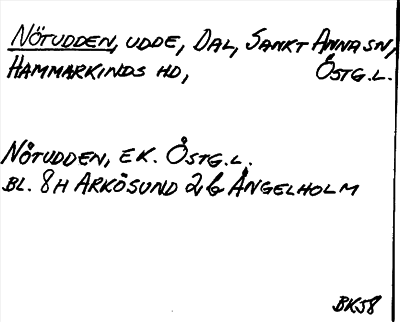 NÖTUDDEN, UDDE, DAL, SANKT ANNA SN,
HAMMARKINDS HD, ÖSTG.L.
NÖTUDDEN, EK. ÖSTG.L.
BL. 8H ARKÖSUND 2b ÄNGELHOLM
BK58